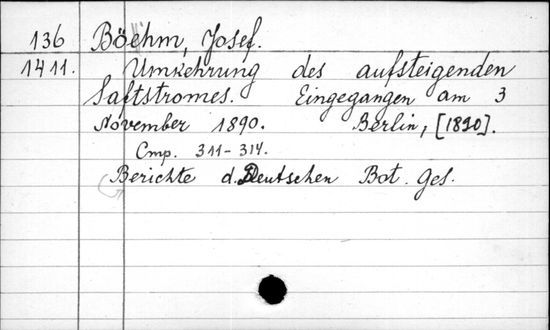 136 Böehm, Josef.
1411. Umkehrung des aufsteigenden
Saftstromes. Eingegangen am 3
November 1890. Berlin, [1890].
Cmp. 311-314.
Berichte d. Deutschen Bot. Ges.